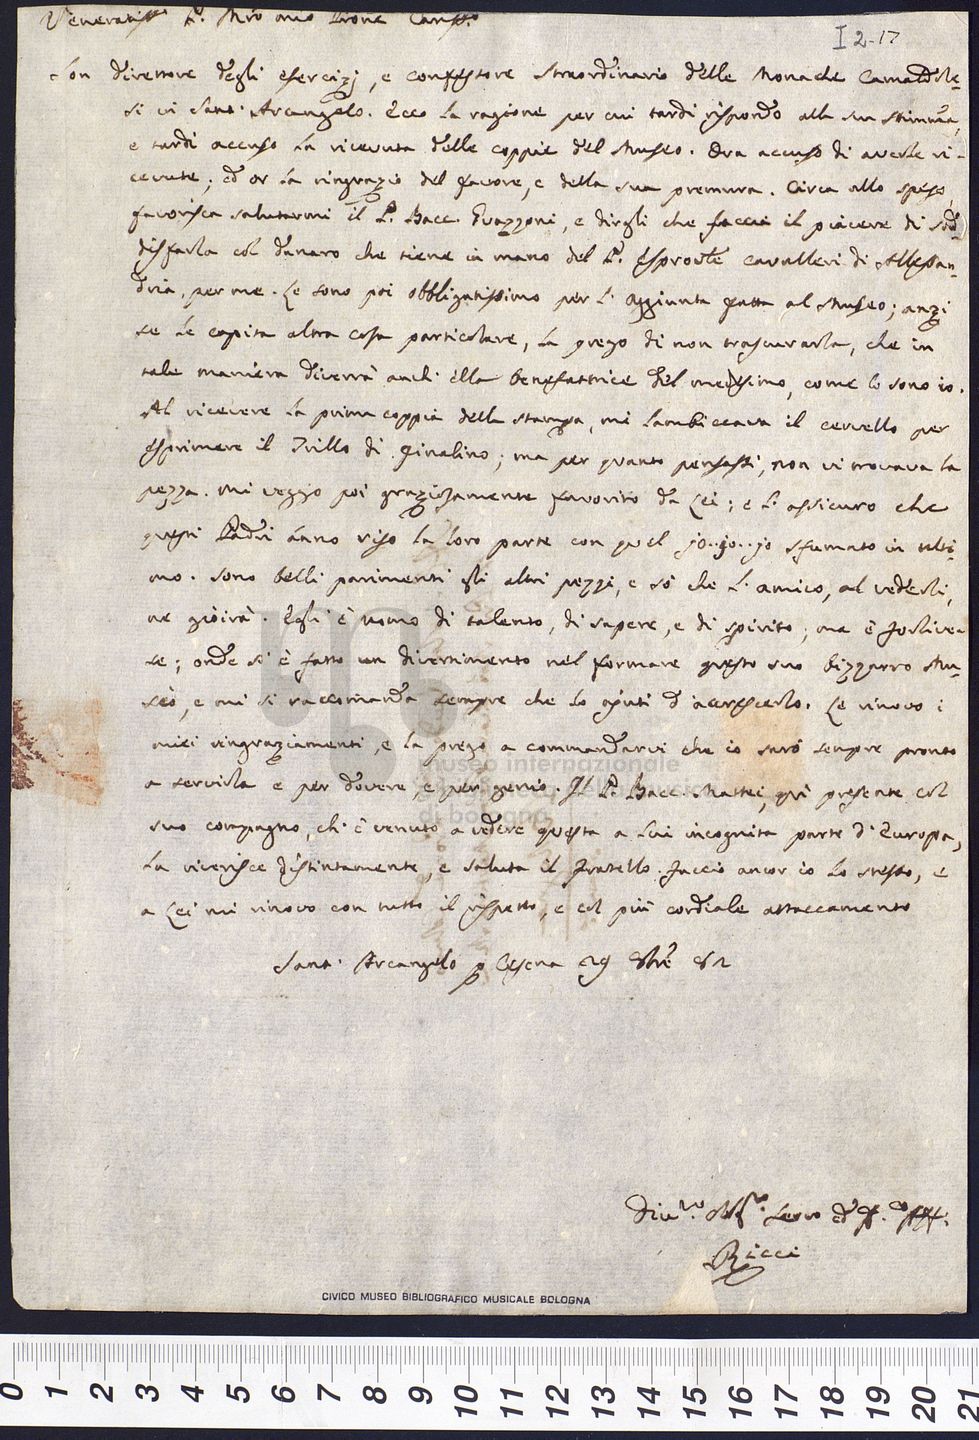 Veneratissmo P. Mro mio Prone Carissmo
I 2-17
Son direttore degli esercizj, e confessore straordinario delle Monache Camaldole-
si in Sant' Arcangelo. Ecco la ragione per cui tardi rispondo alla sua stimma,
e tardi accuso la ricevuta delle coppie del Museo. Ora accuso di averle ri-
cevute; ed or la ringrazio del favore, e della sua premura. Circa allo speso,
favorisca salutarmi il P. Bacc. Guazzoni, e dirgli che faccia il piacere di sod-
disfarla col danaro che tiene in mano del P. Cavalleri di Allessan-
dria, per me. Le sono poi obbligatissimo per l' aggiunta fatta al Museo; anzi
se le capita altra cosa particolare, la prego di non trascurarla, che in
tale maniera diverrà anch' ella benefattrice del medesimo, come lo sono io.
Al ricevere la prima coppia della stampa, mi lambiccava il cervello per
esprimere il Trillo di Ginalino; ma per quanto pensassi, non vi trovava la
pezza. Mi veggio poi graziosamente favorito da Lei; e l' assicuro che
questi Padri ànno riso la loro parte con quel jo..jo..jo sfumato in ulti-
mo. Sono belli parimenti gli altri pezzi, e sò che l' amico, al vederli,
ne gioirà. Egli è uomo di talento, di sapere, e di spirito; ma è
se; onde si è fatto un divertimento nel formare questo suo bizzarro Mu-
seo, e mi si raccomanda sempre che lo ajuti d' accrescerlo. Le rinovo i
miei ringraziamenti, e la prego a commandarvi che io sarò sempre pronto
a servirla e per dovere, e per genio. Il P. Bacc. Mattei, quì presente col
suo compagno, ch' è venuto a vedere questa a lui incognita parte d' Europa,
la riverisce distintamente, e saluta il Fratello. Faccio ancor io lo stesso, e
a Lei mi rinovo con tutto il rispetto, e col più cordiale attaccamento
Sant' Arcangelo p Cesena 29 8bre 82
Ricci
museo internazionale
di bologna
CIVICO MUSEO BIBLIOGRAFICO MUSICALE BOLOGNA
0 1 2 3 4 5 6 7 8 9 10 11 12 13 14 15 16 17 18 19 20 21